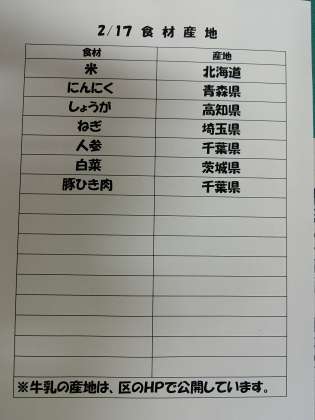 2/17 食材産地
食材 産地
米 北海道
にんにく 青森県
しょうが 高知県
ねぎ 埼玉県
人参 千葉県
白菜 茨城県
豚ひき肉 千葉県
※牛乳の産地は、区のHPで公開しています。